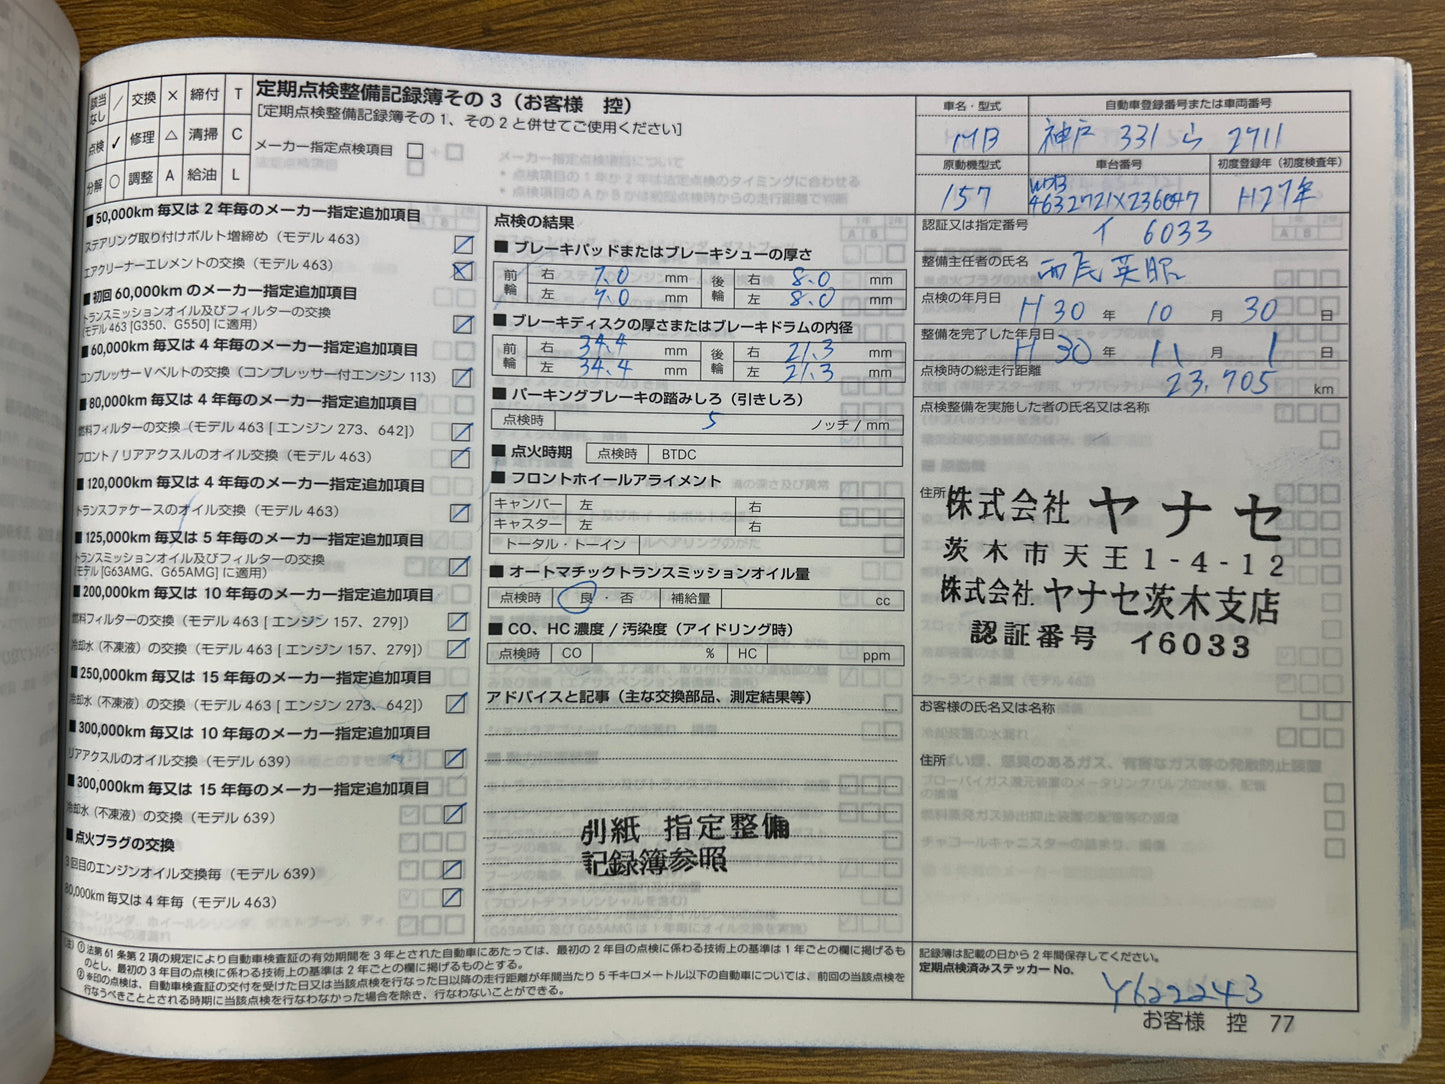 該当なし ／ 交換 × 締付 T
点検 ✓ 修理 △ 清掃 C
分解 ○ 調整 A 給油 L
定期点検整備記録簿その3（お客様　控）
[定期点検整備記録簿その1、その2と併せてご使用ください]
メーカー指定点検項目
■ 50,000km 毎又は 2 年毎のメーカー指定追加項目
ステアリング取り付けボルト増締め（モデル 463）
エアクリーナーエレメントの交換（モデル 463）
■ 初回 60,000km のメーカー指定追加項目
トランスミッションオイル及びフィルターの交換
（モデル 463 [G350、G550] に適用）
■ 60,000km 毎又は 4 年毎のメーカー指定追加項目
コンプレッサーVベルトの交換（コンプレッサー付エンジン 113）
■ 80,000km 毎又は 4 年毎のメーカー指定追加項目
燃料フィルターの交換（モデル 463 [ エンジン 273、642]）
フロント / リアアクスルのオイル交換（モデル 463）
■ 120,000km 毎又は 4 年毎のメーカー指定追加項目
トランスファケースのオイル交換（モデル 463）
■ 125,000km 毎又は 5 年毎のメーカー指定追加項目
トランスミッションオイル及びフィルターの交換
（モデル [G63AMG、G65AMG] に適用）
■ 200,000km 毎又は 10 年毎のメーカー指定追加項目
燃料フィルターの交換（モデル 463 [ エンジン 157、279]）
冷却水（不凍液）の交換（モデル 463 [ エンジン 157、279]）
■ 250,000km 毎又は 15 年毎のメーカー指定追加項目
冷却水（不凍液）の交換（モデル 463 [ エンジン 273、642]）
■ 300,000km 毎又は 10 年毎のメーカー指定追加項目
リアアクスルのオイル交換（モデル 639）
■ 300,000km 毎又は 15 年毎のメーカー指定追加項目
冷却水（不凍液）の交換（モデル 639）
■ 点火プラグの交換
3 回目のエンジンオイル交換毎（モデル 639）
80,000km 毎又は 4 年毎（モデル 463）
点検の結果
■ ブレーキパッドまたはブレーキシューの厚さ
前輪 右 7.0 mm 後輪 右 8.0 mm
左 7.0 mm 左 8.0 mm
■ ブレーキディスクの厚さまたはブレーキドラムの内径
前輪 右 34.4 mm 後輪 右 21.3 mm
左 34.4 mm 左 21.3 mm
■ パーキングブレーキの踏みしろ（引きしろ）
点検時 5 ノッチ / mm
■ 点火時期 点検時 BTDC
■ フロントホイールアライメント
キャンバー 左 右
キャスター 左 右
トータル・トーイン
■ オートマチックトランスミッションオイル量
点検時 良 ・ 否 補給量 cc
■ CO、HC 濃度 / 汚染度（アイドリング時）
点検時 CO % HC ppm
アドバイスと記事（主な交換部品、測定結果等）
別紙　指定整備
記録簿参照
車名・型式 自動車登録番号または車両番号
MB 神戸 331 ら 2711
原動機型式 車台番号 初度登録年（初度検査年）
157 WDB 4632721X236047 H27年
認証又は指定番号 イ 6033
整備主任者の氏名
点検の年月日 H30 年 10 月 30 日
整備を完了した年月日 H30 年 11 月 1 日
点検時の総走行距離 23,705 km
点検整備を実施した者の氏名又は名称
住所
株式会社 ヤナセ
茨木市天王1-4-12
株式会社 ヤナセ茨木支店
認証番号　イ6033
お客様の氏名又は名称
住所
記録簿は記載の日から 2 年間保存してください。
定期点検済みステッカー No.
Y622243
（注）① 法第 61 条第 2 項の規定により自動車検査証の有効期間を 3 年とされた自動車にあたっては、最初の 2 年目の点検に係わる技術上の基準は 1 年ごとの欄に掲げるも
のとし、最初の 3 年目の点検に係わる技術上の基準は 2 年ごとの欄に掲げるものとする。
② ※印の点検は、自動車検査証の交付を受けた日又は当該点検を行なった日以降の走行距離が年間当たり 5 千キロメートル以下の自動車については、前回の当該点検を
行なうべきこととされる時期に当該点検を行なわなかった場合を除き、行なわないことができる。
お客様　控　77